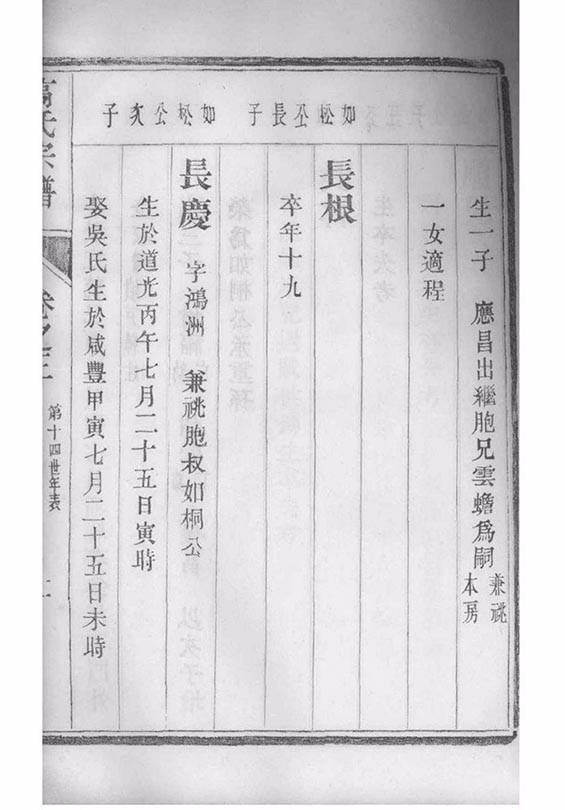 生一子 應昌出繼胞兄雲蟾爲嗣 兼祧本房
一女適程
如松公長子
長根
卒年十九
如松公次子
長慶 字鴻洲 兼祧胞叔如桐公
生於道光丙午七月二十五日寅時
娶吳氏生於咸豐甲寅七月二十五日未時
高氏宗譜
卷之
第十四世年表